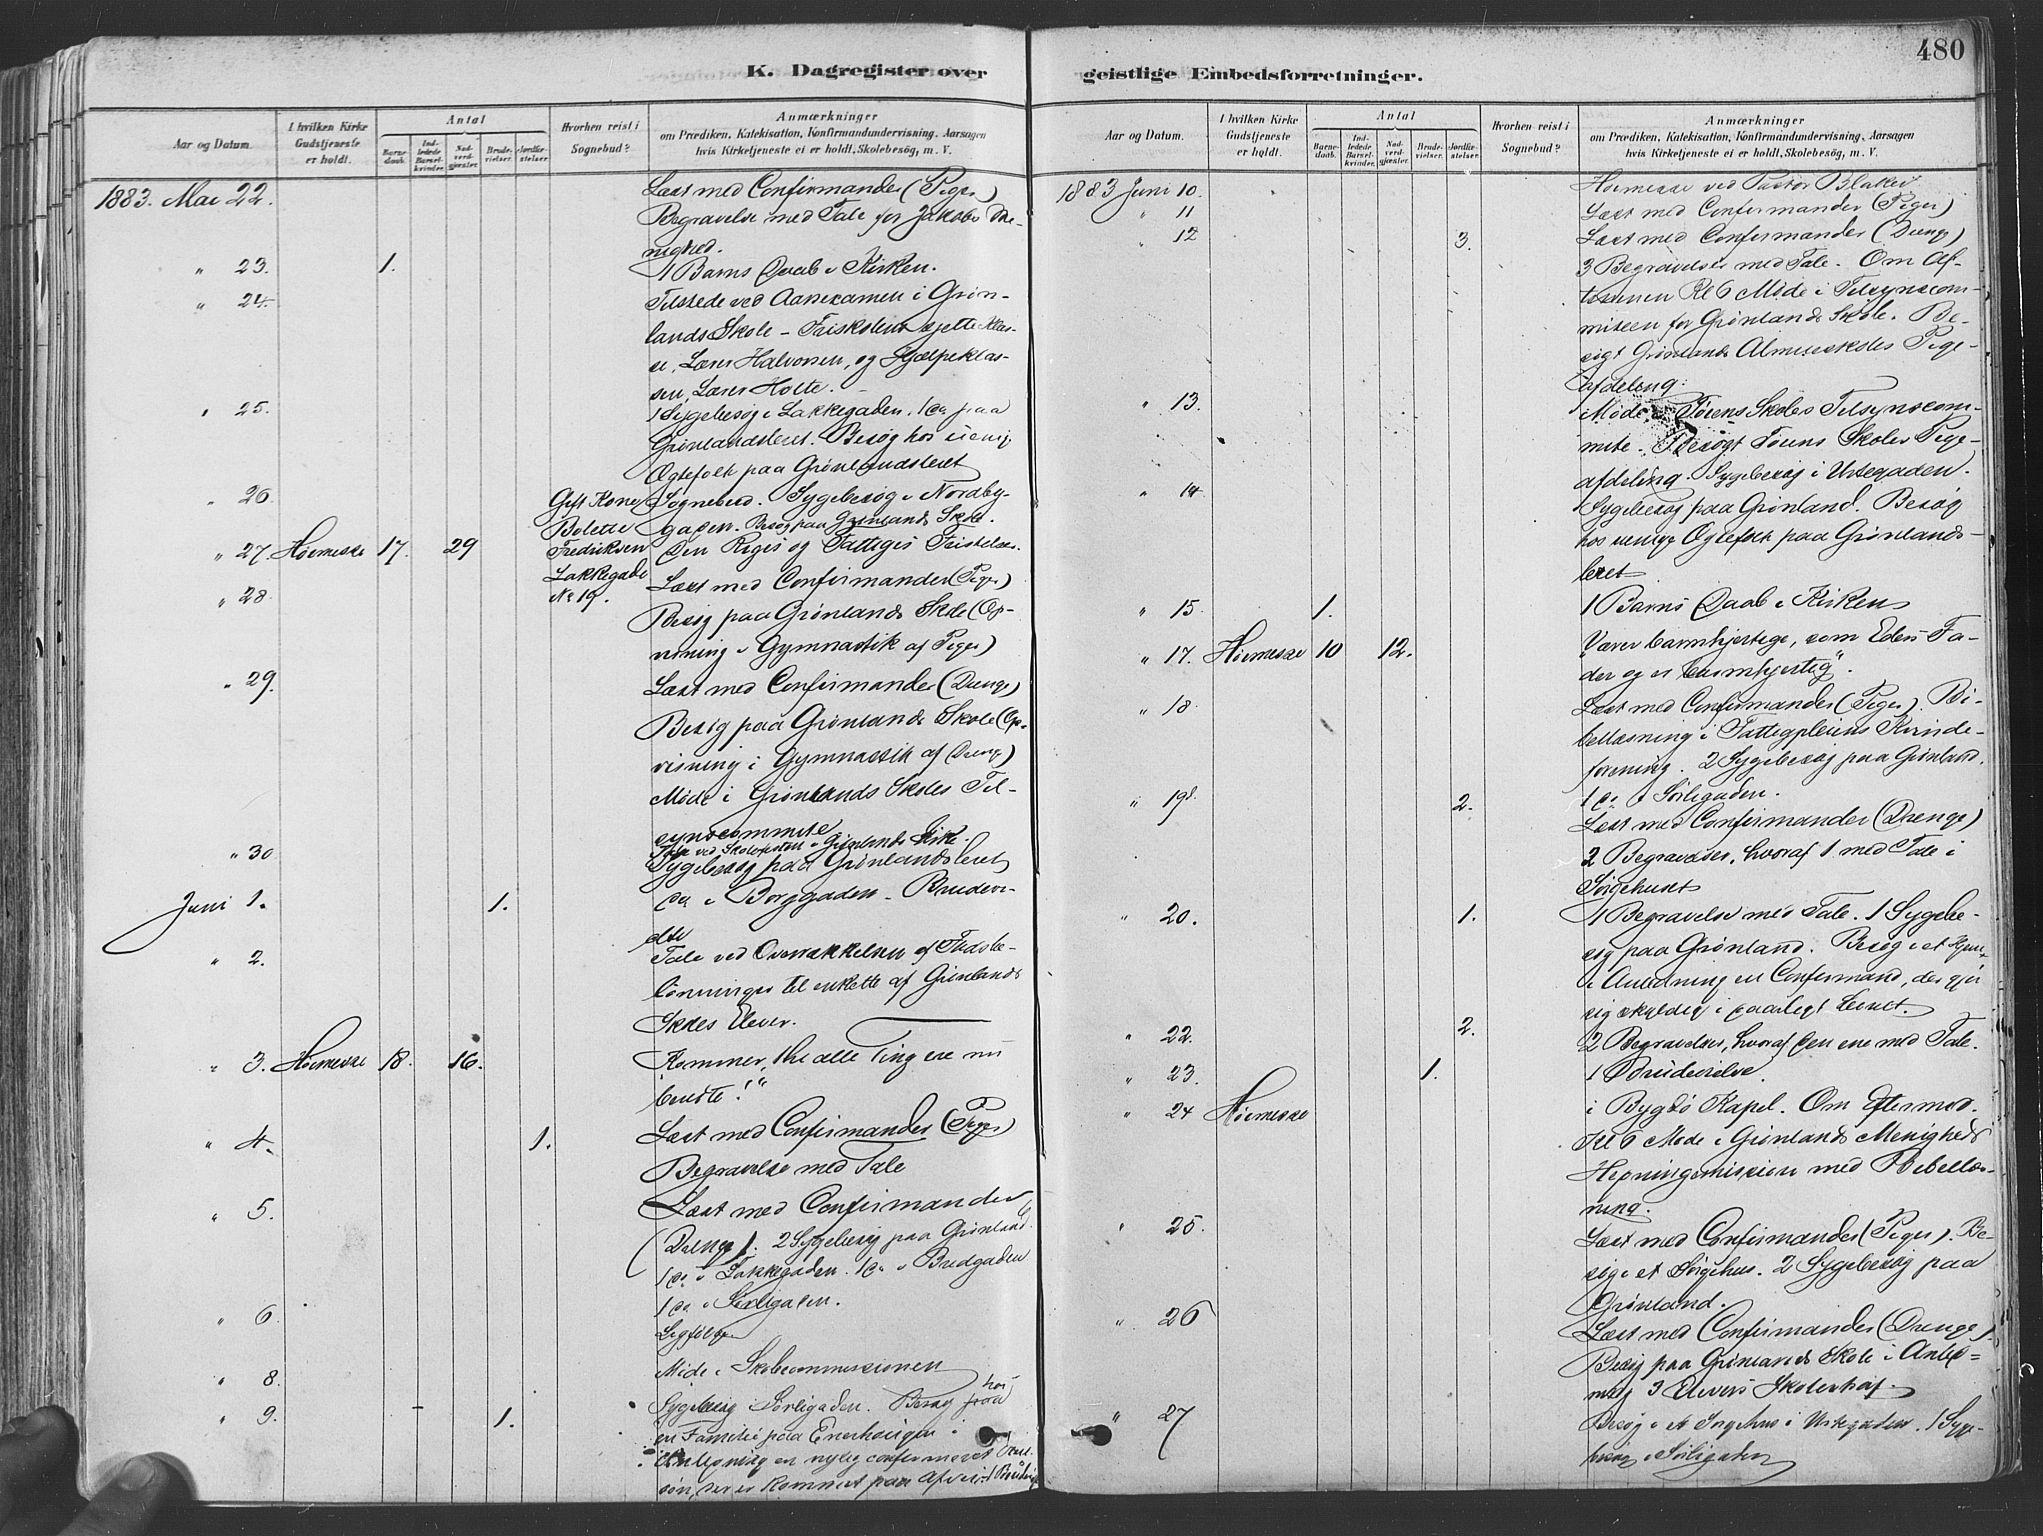 480
K. Dagregister over
Aar og Datum.
I hvilken Kirke Gudstjeneste er holdt.
Antal
Barnedaab.
Indledede Barselkvinder.
Nadverdgjæster.
Brudevielser.
Jordfæstelser.
Hvorhen reist i Sognebud?
Anmærkninger
om Prædiken, Katekisation, Konfirmandundervisning, Aarsagen
hvis Kirketjeneste ei er holdt, Skolebesøg, m. V.
1883. Mai 22. Læst med Confirmander (Piger)
Begravelse med Tale for Jakobs Me-
nighed.
" 23. 1. 1 Barns Daab i Kirken.
" 24. Tilstede ved Aarsexamen i Grøn-
lands Skole - Friskolens sjette Klas-
se, Lærer Halvorsen, og Hjælpeklas-
sen, Lærer Holte.
" 25. 1 Sygebesøg i Lakkegaden, 1 do paa
Grønlandsleret. Besøg hos uenige
Ægtefolk paa Grønlandsleret
" 26. Gift Kone Bolette Fredriksen Lakkegade No 19. Sognebud. Sygebesøg i Nordby-
gaden. Besøg paa Grønlands Skole.
" 27. Høimesse 17. 29 Den Riges og Fattiges Fristelser.
" 28. Læst med Confirmander (Piger)
Besøg paa Grønlands Skole (Op-
visning i Gymnastik af Piger)
" 29. Læst med Confirmander (Drenge)
Besøg paa Grønlands Skole (Op-
visning i Gymnastik af Drenge)
Møde i Grønlands Skoles Til-
synscommite
" 30 Tale ved Skolefesten i Grønlands Kirke.
Sygebesøg paa Grønlandsleret
Juni 1. 1. do i Borggaden - Brudevi-
else
" 2. Tale ved Overrækkelsen af Flids be-
lønninger til enkelte af Grønlands
Skoles Elever.
" 3. Høimesse 18. 16. Kommer, thi alle Ting ere nu
beredte!"
" 4. 1. Læst med Confirmander (Piger)
Begravelse med Tale
" 5. Læst med Confirmander
(Drenge). 2 Sygebesøg paa Grønland
1 do i Lakkegaden. 1 do i Bredgaden
1 do i Sørligaden.
" 6. Ligfølge
" 8. Møde i Skolecommissionen
" 9. 1. Sygebesøg i Sørligaden. Besøg hos
en Familie paa Enerhaugen i
Anledning en nylig confirmeret
søn, der er kommet paa Afveie. 1 Brudevielse
geistlige Embedsforretninger.
Aar og Datum.
I hvilken Kirke Gudstjeneste er holdt.
Antal
Barnedaab.
Indledede Barselkvinder.
Nadverdgjæster.
Brudevielser.
Jordfæstelser.
Hvorhen reist i Sognebud?
Anmærkninger
om Prædiken, Katekisation, Konfirmandundervisning, Aarsagen
hvis Kirketjeneste ei er holdt, Skolebesøg, m. V.
1883 Juni 10. Høimesse ved Pastor Blakes
" 11 Læst med Confirmander (Piger)
" 12 3. Læst med Confirmander (Drenge)
3 Begravelser med Tale. Om Af-
tenen Kl 6 Møde i Tilsynscom-
miteen for Grønlands Skole. Be-
søgt Grønlands Almueskoles Pige-
afdeling.
" 13. Møde i Tøiens Skoles Tilsynscom-
mite. Besøgt Tøiens Skoles Pige-
afdeling. Sygebesøg i Urtegaden.
" 14. Sygebesøg paa Grønland. Besøg
hos uenige Ægtefolk paa Grønlands-
leret
" 15. 1. 1 Barns Daab i Kirken
" 17. Høimesse 10 12. Værer barmhjertige, som Eders Fa-
der og er barmhjertig".
" 18. Læst med Confirmander (Piger). Bi-
bellæsning i Fattigpleiens Kvinde-
forening. 2 Sygebesøg paa Grønland.
1 do i Sørligaden.
" 19. 2. Læst med Confirmander (Drenge)
2 Begravelser, hvoraf 1 med Tale i
Sørgehuset
" 20. 1. 1 Begravelse med Tale. 1 Sygebe-
søg paa Grønland. Besøg i et Hjem
i Anledning en Confirmand, der gjør
sig skyldig i daarligt Levnet.
" 22. 2. 2 Begravelser, hvoraf den ene med Tale.
" 23. 1. 1 Brudevielse.
" 24 Høimesse i Bygdø Kapel. Om Eftermid.
Kl 6 Møde i Grønlands Menigheds
Hedningemission med Bibellæs-
ning.
" 25. Læst med Confirmander (Piger). Be-
søg i et Sørgehus. 2 Sygebesøg paa
Grønland.
" 26 Læst med Confirmander (Drenge).
Besøg paa Grønlands Skole i Anled-
ning 3 Elevers Skoleskaf.
" 27 Besøg i et Sørgehus i Urtegaden. 1 Syge-
besøg i Sørligaden